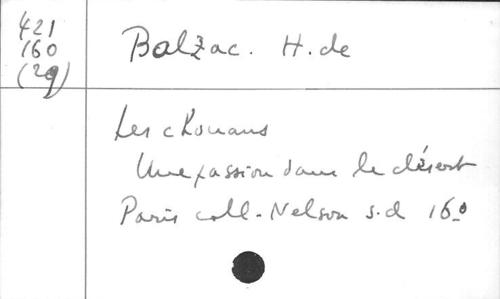 421
160
(2g)
Balzac. H. de
Les chouans
Une passion dans le désert
Paris coll. Nelson s.d 16º